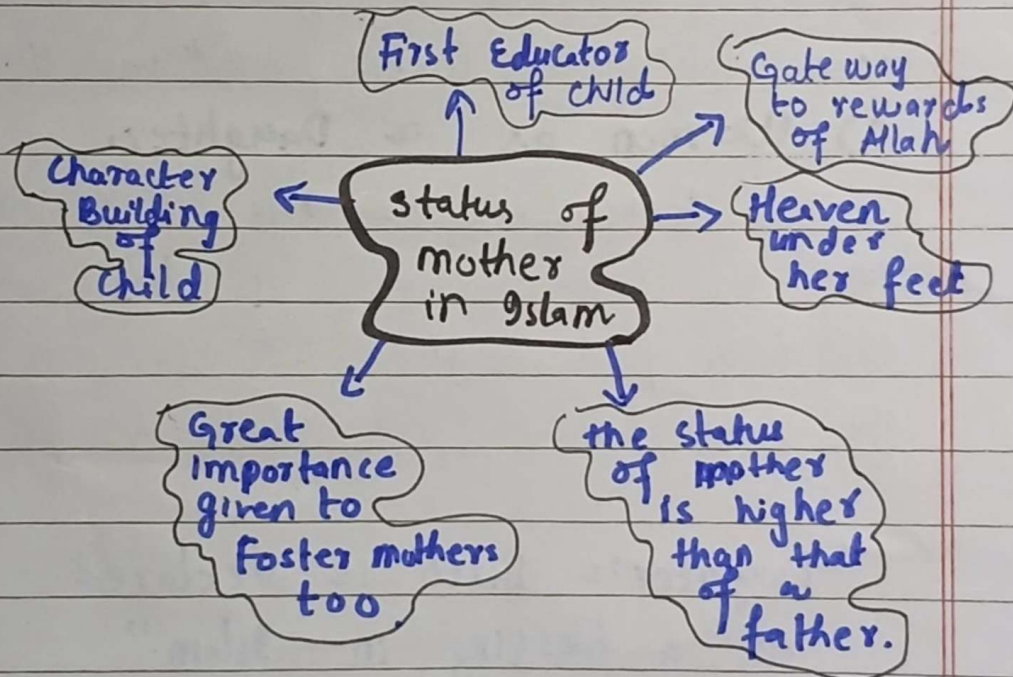 First Educator
of child
Gate way
to rewards
of Allah
Character
Building
of
Child
status of
mother
in Islam
Heaven
under
her feet
Great
importance
given to
Foster mothers
too.
the status
of mother
is higher
than that
of a
father.